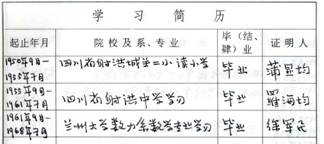 学习简历
起止年月 院校及系、专业 毕(结、肄)业 证明人
1950年9月— 四川省射洪城第二小读小学 毕业
1955年7月
1955年9月— 四川省射洪中学学习 毕业 罗海均
1961年7月
1961年9月— 兰州大学数力系数学专业学习 毕业 徐军民
1968年7月